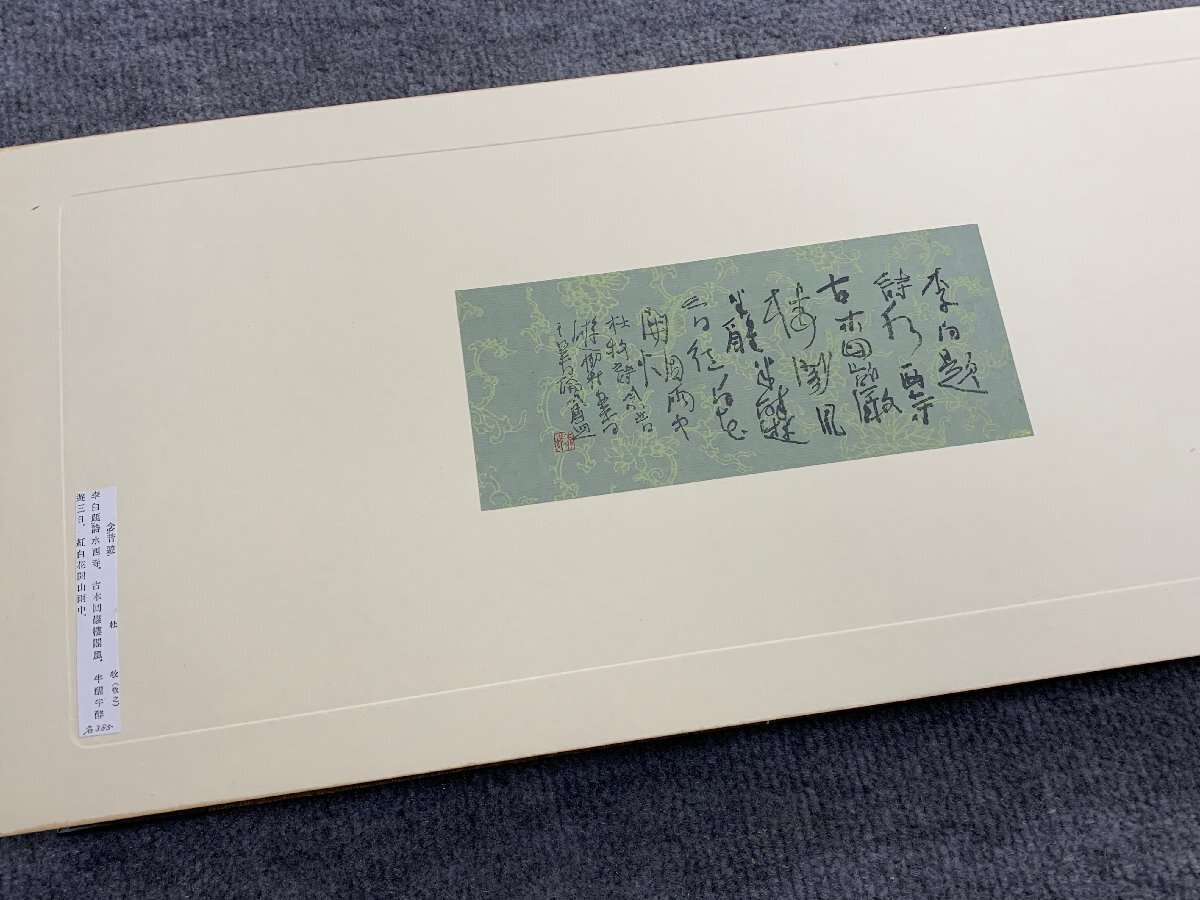 李白題
詩水西寺
古木回巖
樓閣風
半醒半醉遊
三日紅白花
開山雨中
杜牧詩念昔
念昔遊 杜 牧(牧之)
李白題詩水西寺。古木回巖樓閣風。半醒半醉
遊三日。紅白花開山雨中。
名385